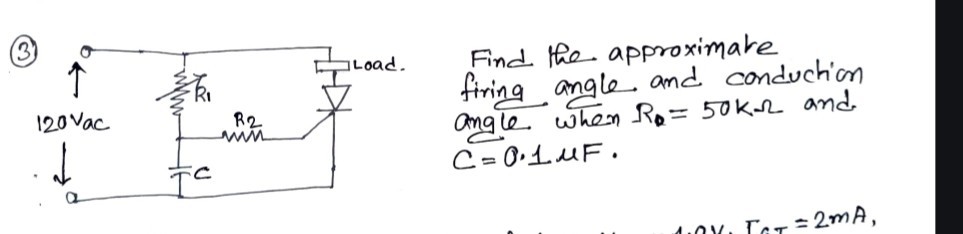 ③
Load.
R1
120Vac
R2
C
Find the approximate
firing angle and conduction
angle when R = 50KΩ and
C = 0.1 μF.
IGT = 2mA,